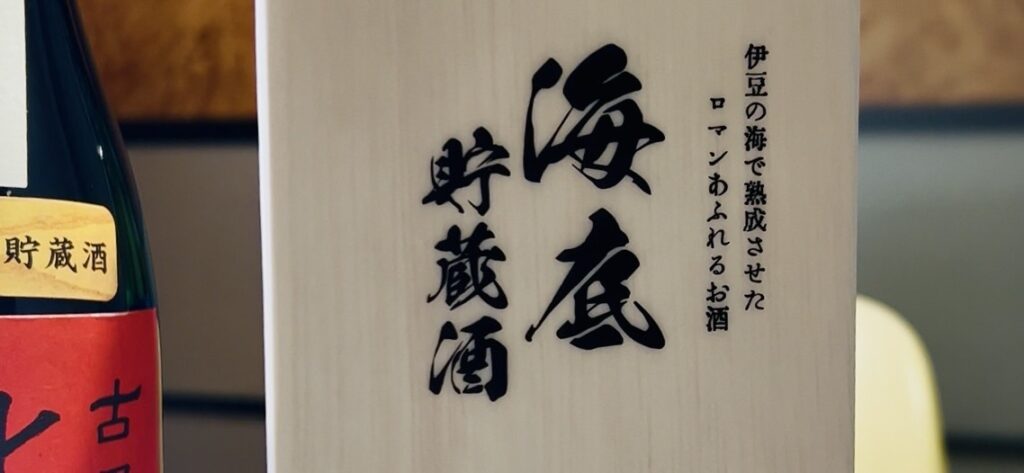 伊豆の海で熟成させた
ロマンあふれるお酒
海底
貯蔵酒
貯蔵酒
古